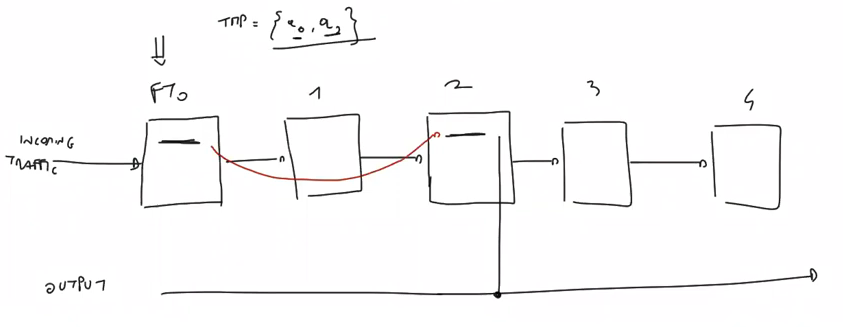 TMP = {a0, a2}
FT0 1 2 3 4
INCOMING
TRAFFIC
OUTPUT